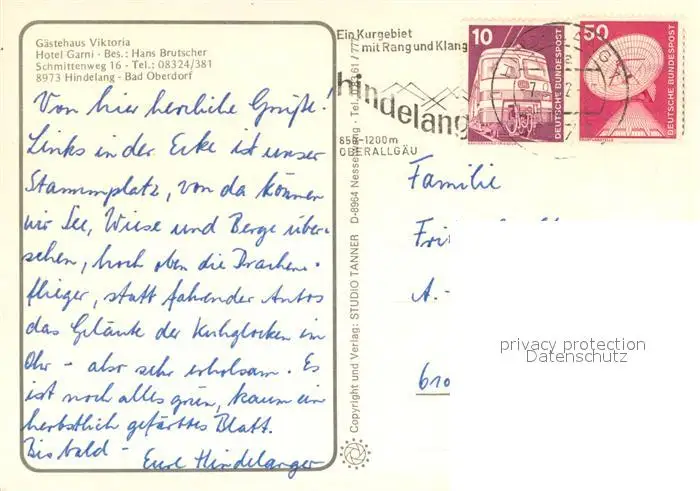 Gästehaus Viktoria
Hotel Garni · Bes.: Hans Brutscher
Schmittenweg 16 - Tel.: 08324/381
8973 Hindelang - Bad Oberdorf
Von hier herzliche Grüße!
Links in der Ecke ist unser
Stammplatz, von da können
wir See, Wiese und Berge über-
sehen, hoch oben die Drachen-
flieger, statt fahrender Autos
das Geläute der Kuhglocken im
Ohr - also sehr erholsam. Es
ist noch alles grün, kaum ein
herbstlich gefärbtes Blatt.
Bis bald - Eure Hindelanger
Copyright und Verlag: STUDIO TANNER D-8964 Nesselwang · Tel.
Ein Kurgebiet
mit Rang und Klang
hindelang
850-1200m
OBERALLGÄU
10
DEUTSCHE BUNDESPOST
50
DEUTSCHE BUNDESPOST
Familie
Fri
A.-
610
privacy protection
Datenschutz